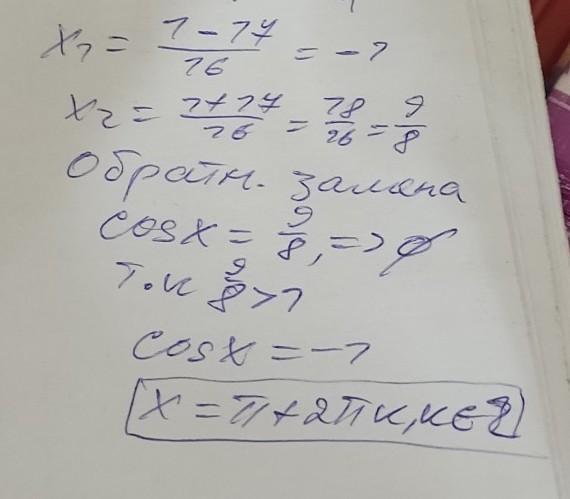 x₁ = (1 - 17)/16 = -1
x₂ = (1 + 17)/16 = 18/16 = 9/8
Обратн. замена
cos x = 9/8, => ∅
т.к 9/8 > 1
cos x = -1
x = π + 2πк, к ∈ Z